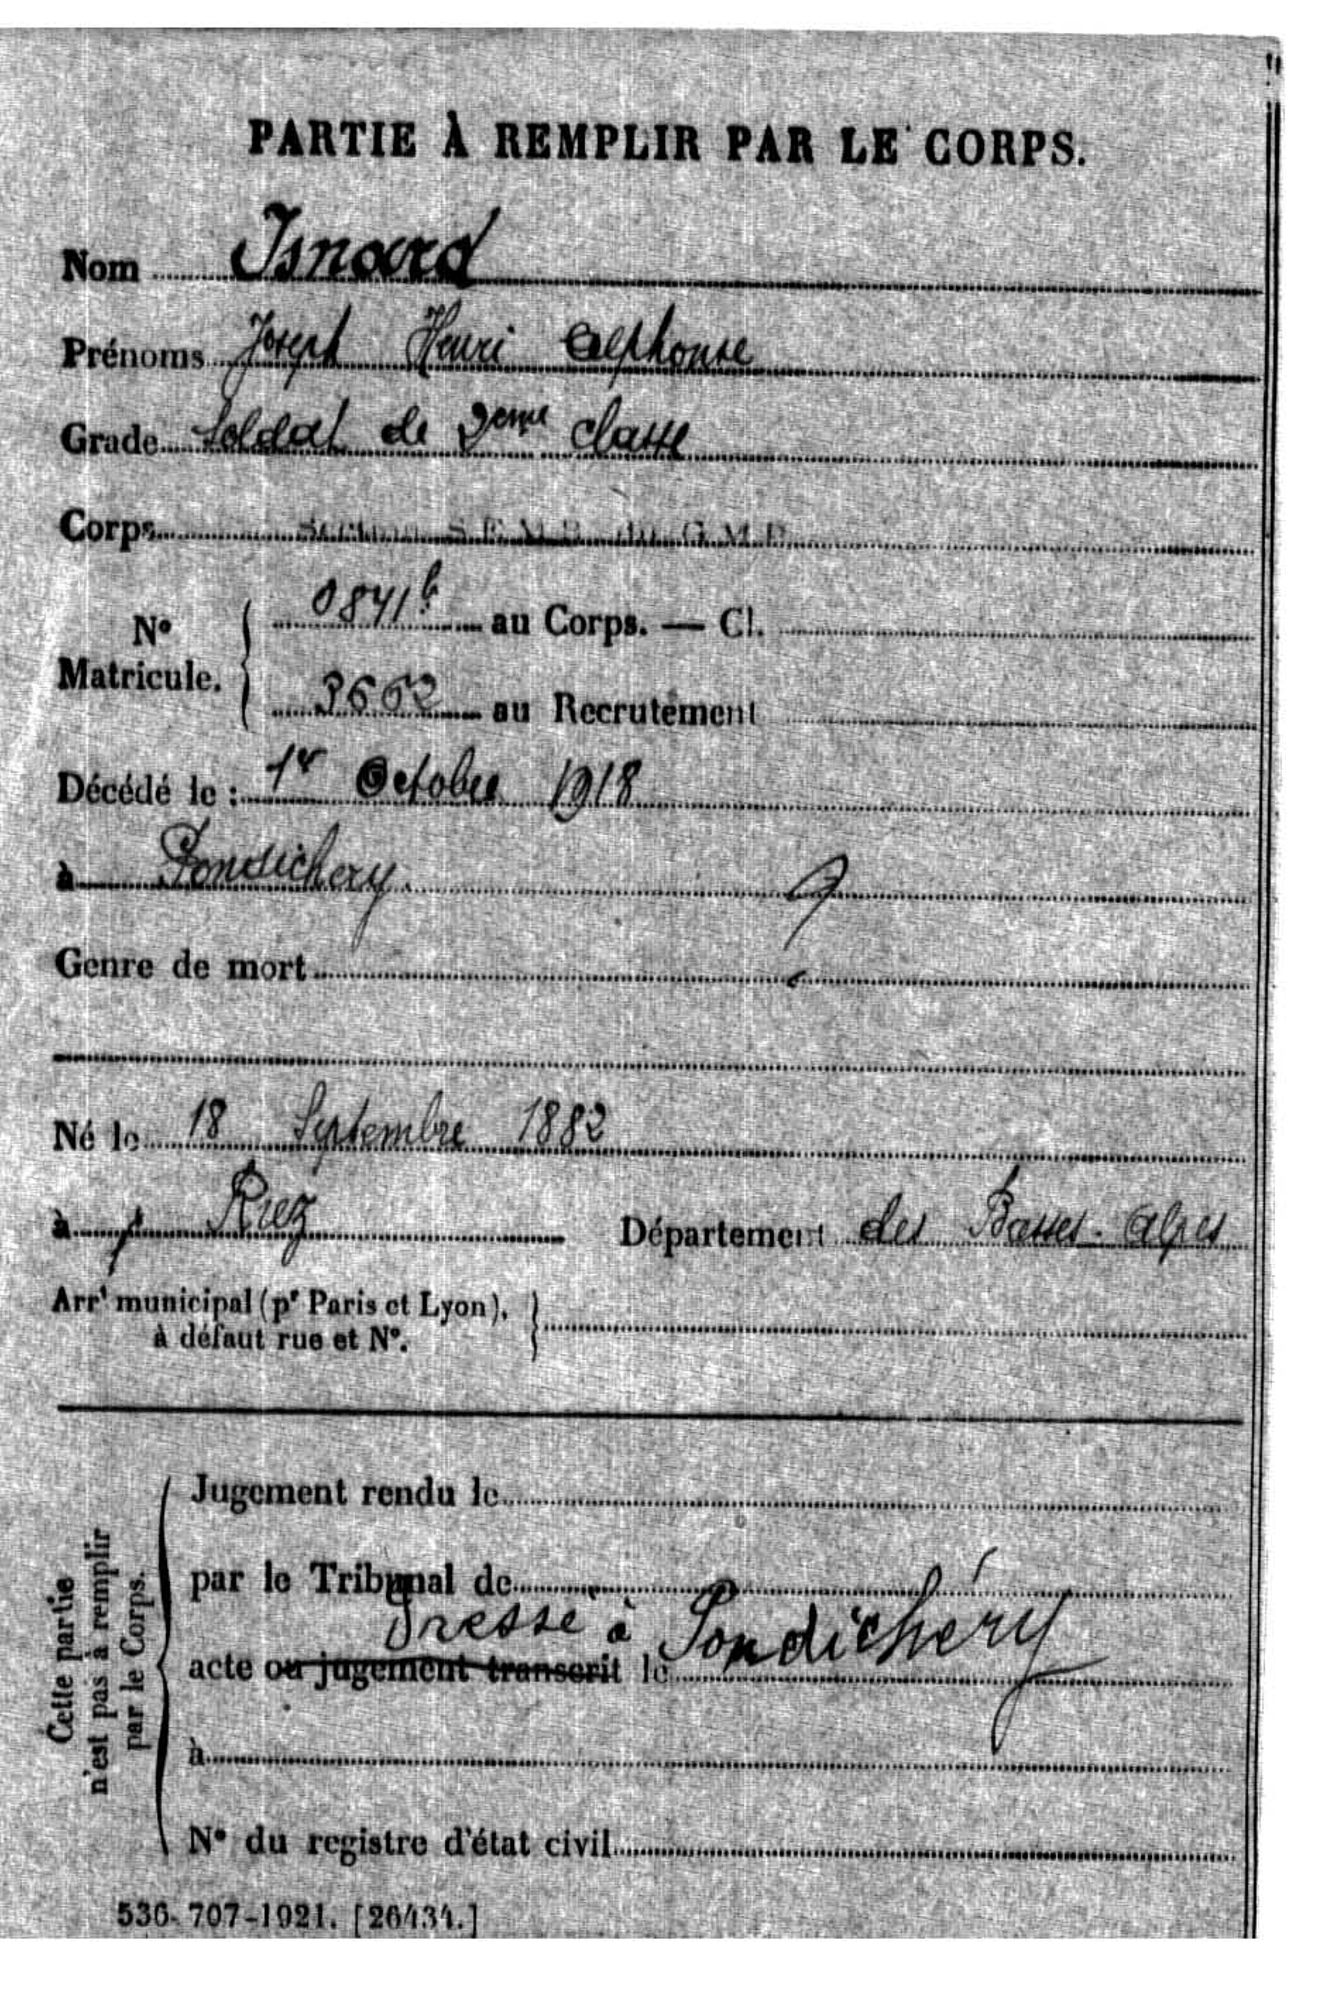 PARTIE À REMPLIR PAR LE CORPS.
Nom Isnard
Prénoms Joseph Henri Alphonse
Grade Soldat de 2eme classe
Corps Section S.F.M.R. du G.M.P.
N° Matricule. { 0841 b au Corps. — Cl.
au Recrutement
Décédé le : 1er Octobre 1918
à Pondichery
Genre de mort
Né le 18 Septembre 1882
à Riez Département des Basses-Alpes
Arrt municipal (pr Paris et Lyon), à défaut rue et N°. }
Cette partie n'est pas à remplir par le Corps.
Jugement rendu le
par le Tribunal de
Dressé à Pondichéry
acte ou jugement transcrit le
à
N° du registre d'état civil
536-707-1921. [26434.]